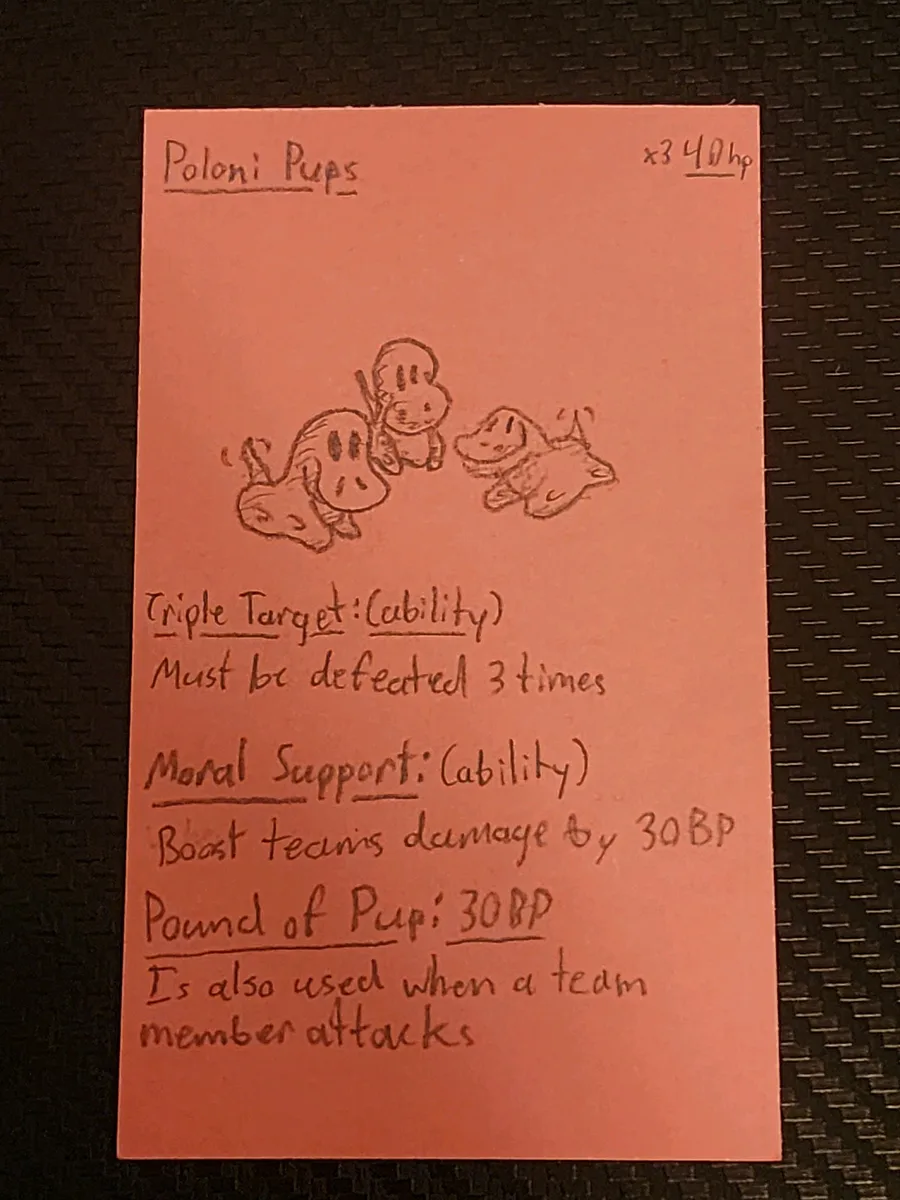 Poloni Pups
x3 40hp
Triple Target: (ability)
Must be defeated 3 times
Moral Support: (ability)
Boost teams damage by 30BP
Pound of Pup: 30BP
Is also used when a team
member attacks